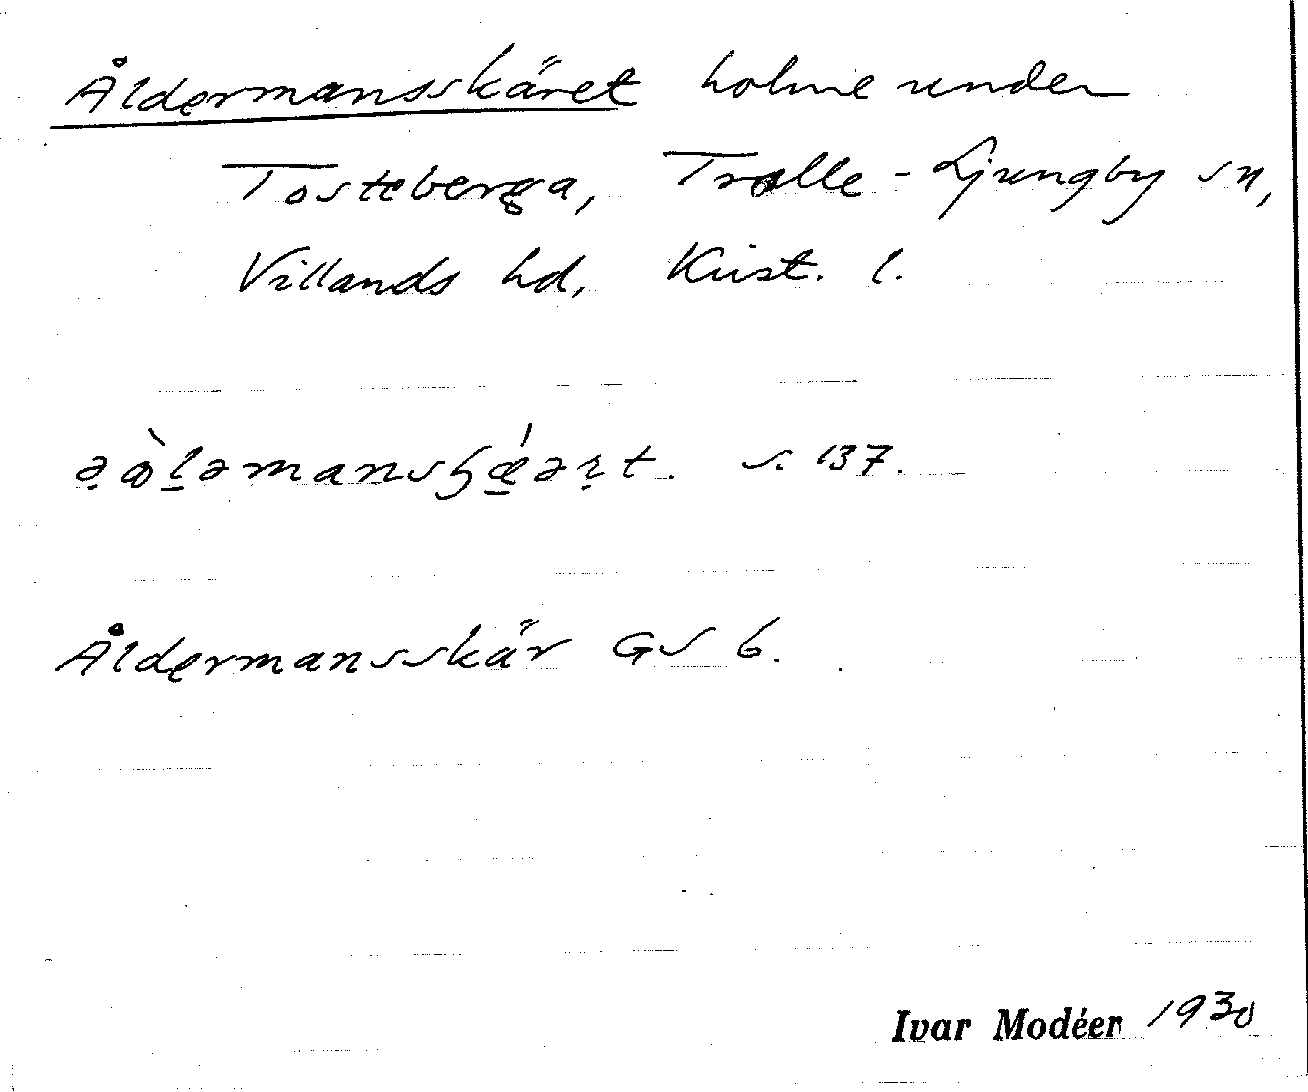 Åldermansskäret holme under
Tosteberga, Trolle-Ljungby sn,
Villands hd, Krist. l.
s. 137.
Åldermansskär GS 6.
Ivar Modéer 1930